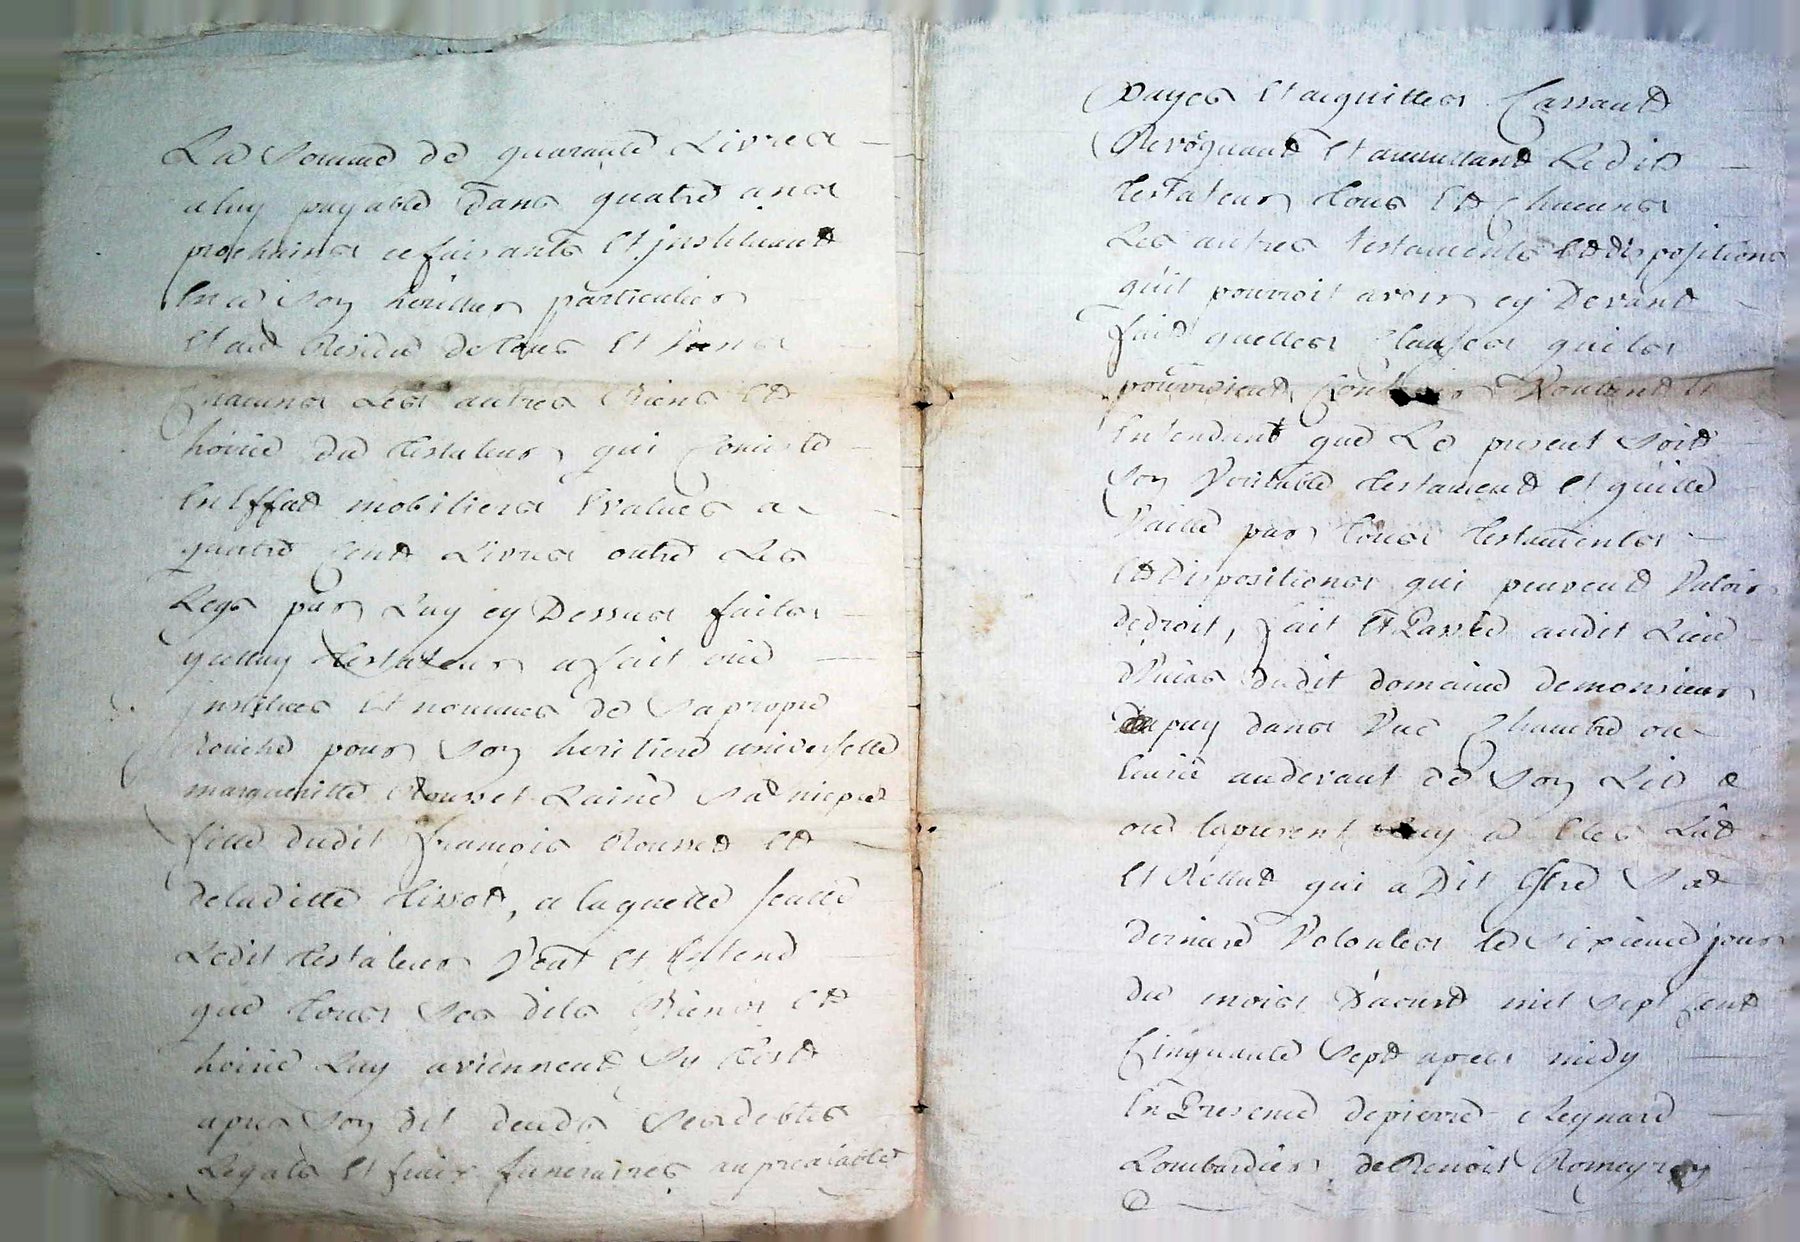 La Somme de quarante Livres
a luy payable dans quatre ans
prochains ce faisants Et jnstituant
En ce Son héritier particulier
Et au Residu de tous Et Uns
Chacuns Les autres Biens Et
hoirie du testateur qui Consiste
En Effat mobiliers Evalués a
quatre Cent Livres outre Les
Legs par Luy cy Dessus faites
yceluy testateur a fait crée
jnstitues Et nommes de Sa propre
Bouche pour Son heritiere universelle
margueritte Rousset Lainé Sa niepce
fille dudit françois Rousset Et
deladitte tissot, a laquelle
Ledit testateur Veut Et Entend
que tous Ses dits Biens Et
hoirie Luy aviennent Sy tost
apres Son dit deceds Ses debtes
Legats Et fraix funeraires aupréalable
payes Et acquittes Cassant
Revoquant Et annullant Ledit
testateur tous Et Chacuns
Les autres testaments Et dispositions
quil pouvoit avoir cy Devant
fait quelles Clauses quils
pourroient Contenir Voulant Et
Entendant que Le present Soit
Son Veritable testament Et quille
Vaille par tous testaments
Et Dispositions qui peuvent Valoir
dedroit, fait Et Passé audit Lieu
dudit domaine demonsieur
Dupuy dans Une Chambre ou
audevant de Son Lit
ou Lapresent Luy a Etes Lut
Et Rellut qui a Dit Estre Sa
derniere Volontes Le Sixieme jour
du mois D'aoust mil Sept Cent
Cinquante Sept apres midy
En Presence depierre Reynard
Lombardier, deBenoit Romeyron